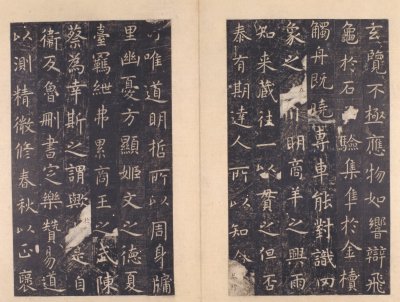 玄覽不極應物如響辯飛
龜於石驗集隼於金櫝
觸舟既曉專車能對識罔
象之川明商羊之興雨
知來藏往一以貫之但否
泰有期達人所以知
唯道明哲所以周身牖
里幽憂方顯姬文之德夏
臺羈紲弗累商王之武陳
蔡為幸斯之謂歟自
衛反魯刪書定樂贊易道
以測精微修春秋以正褒